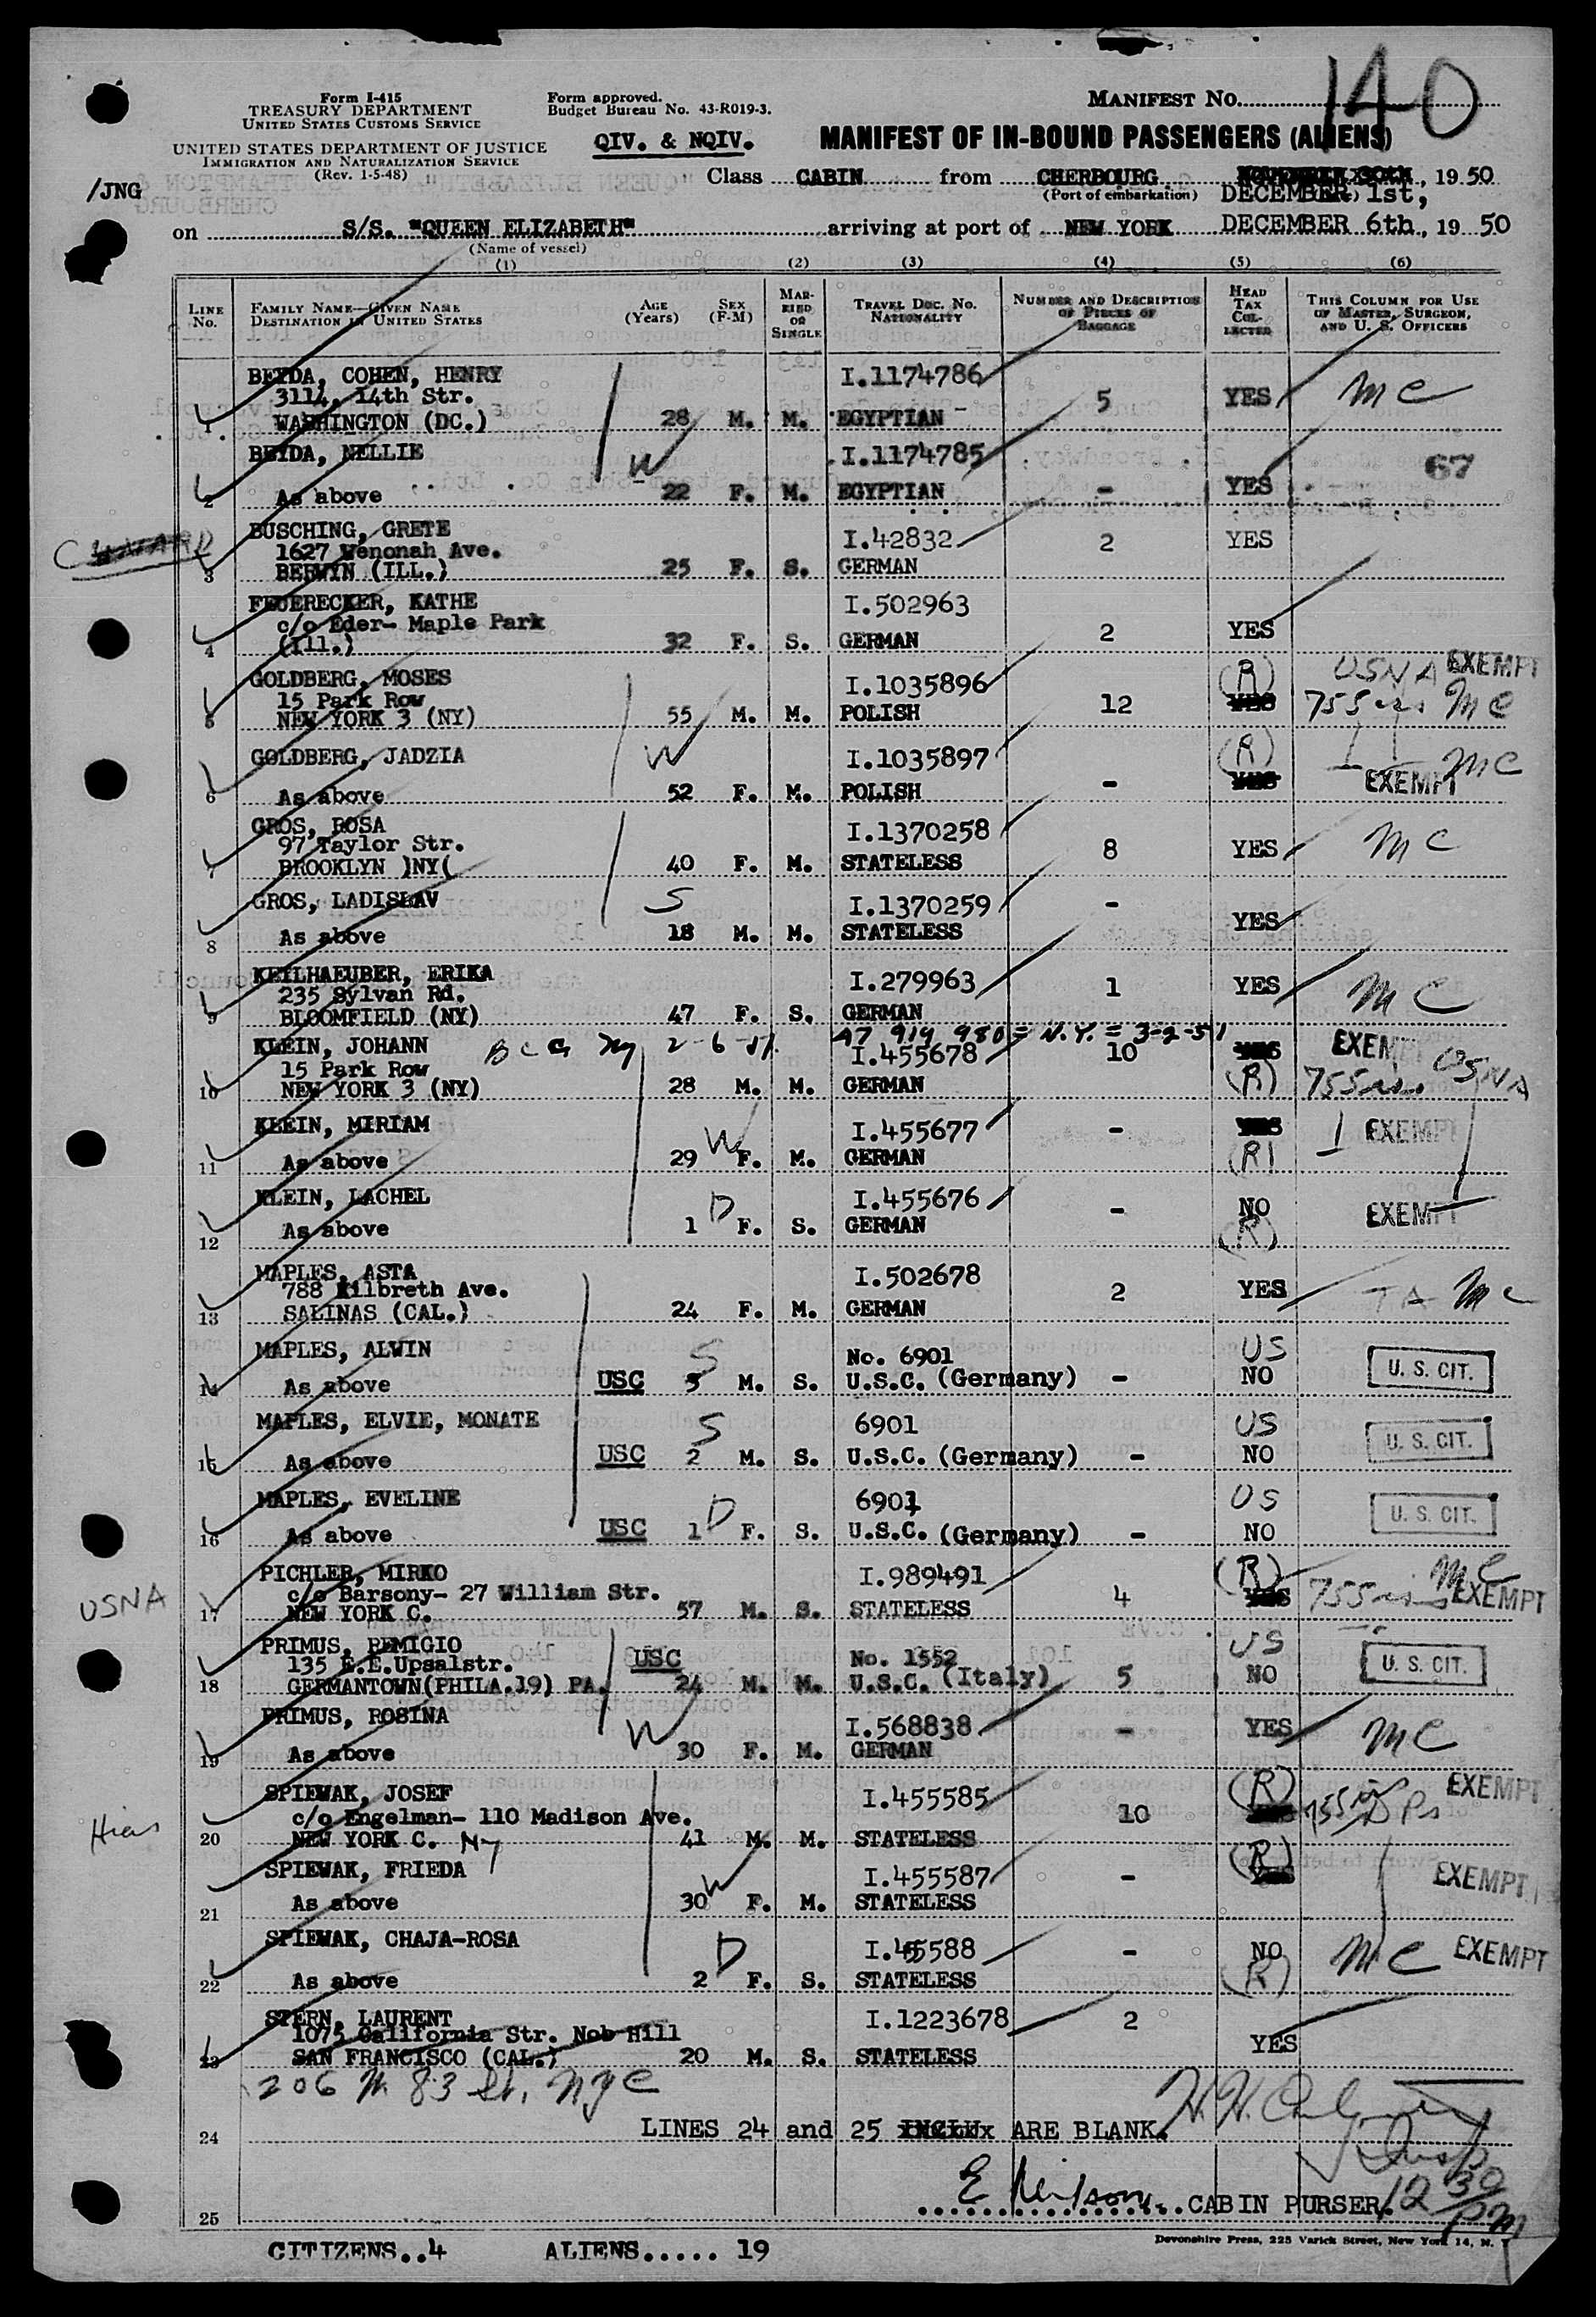 140
Form I-415
TREASURY DEPARTMENT
UNITED STATES CUSTOMS SERVICE
UNITED STATES DEPARTMENT OF JUSTICE
IMMIGRATION AND NATURALIZATION SERVICE
(Rev. 1-5-48)
Form approved.
Budget Bureau No. 43-R019-3.
QIV. & NQIV.
MANIFEST No.
MANIFEST OF IN-BOUND PASSENGERS (ALIENS)
/JNG
Class CABIN from CHERBOURG, 1950
(Port of embarkation) DECEMBER 1st,
on S/S. "QUEEN ELIZABETH" arriving at port of NEW YORK DECEMBER 6th, 19 50
(Name of vessel)
(1) (2) (3) (4) (5) (6)
LINE No. FAMILY NAME—GIVEN NAME DESTINATION IN UNITED STATES AGE (Years) SEX (F-M) MARRIED OR SINGLE TRAVEL DOC. No. NATIONALITY NUMBER AND DESCRIPTION OF PIECES OF BAGGAGE HEAD TAX COLLECTED THIS COLUMN FOR USE OF MASTER, SURGEON, AND U. S. OFFICERS
BEYDA, COHEN, HENRY I.1174786
3114, 14th Str. 5 YES MC
1 WASHINGTON (DC.) 28 M. M. EGYPTIAN
BEYDA, NELLIE W I.1174785 67
2 As above 22 F. M. EGYPTIAN - YES
CUNARD
BUSCHING, GRETE I.42832 2 YES
1627 Wenonah Ave.
3 BERWYN (ILL.) 25 F. S. GERMAN
FEUERECKER, KATHE I.502963
c/o Eder- Maple Park 2 YES
4 (Ill.) 32 F. S. GERMAN
GOLDBERG, MOSES I.1035896 (R) USNA EXEMPT
15 Park Row 12 YES 755 MC
5 NEW YORK 3 (NY) 55 M. M. POLISH
GOLDBERG, JADZIA W I.1035897 (R) MC
6 As above 52 F. M. POLISH - YES EXEMPT
GROS, ROSA I.1370258
97 Taylor Str. 8 YES MC
7 BROOKLYN )NY( 40 F. M. STATELESS
GROS, LADISLAV S I.1370259 - YES
8 As above 18 M. M. STATELESS
KEILHAEUBER, ERIKA I.279963 1 YES MC
235 Sylvan Rd.
9 BLOOMFIELD (NY) 47 F. S. GERMAN
A7 914 980 = N.Y. = 3-2-51
KLEIN, JOHANN 2-6-51 I.455678 10 YES EXEMPT USNA
15 Park Row (R) 755
10 NEW YORK 3 (NY) 28 M. M. GERMAN
KLEIN, MIRIAM W I.455677 - YES EXEMPT
11 As above 29 F. M. GERMAN (R)
KLEIN, LACHEL D I.455676 - NO EXEMPT
12 As above 1 F. S. GERMAN (R)
MAPLES, ASTA I.502678
788 Kilbreth Ave. 2 YES TA MC
13 SALINAS (CAL.) 24 F. M. GERMAN
MAPLES, ALWIN S No. 6901 US U. S. CIT.
14 As above USC 3 M. S. U.S.C. (Germany) - NO
MAPLES, ELVIE, MONATE S 6901 US U. S. CIT.
15 As above USC 2 M. S. U.S.C. (Germany) - NO
MAPLES, EVELINE D 6901 US U. S. CIT.
16 As above USC 1 F. S. U.S.C. (Germany) - NO
PICHLER, MIRKO I.989491 (R) MC
USNA c/o Barsony- 27 William Str. 4 YES 755 EXEMPT
17 NEW YORK C. 57 M. S. STATELESS
PRIMUS, REMIGIO USC No. 1552 US U. S. CIT.
135 E.E.Upsalstr. 5 NO
18 GERMANTOWN(PHILA.19) PA. 24 M. M. U.S.C. (Italy)
PRIMUS, ROSINA W I.568838 - YES MC
19 As above 30 F. M. GERMAN
SPIEWAK, JOSEF I.455585 (R) EXEMPT
Hias c/o Engelman- 110 Madison Ave. 10 DPs
20 NEW YORK C. NY 41 M. M. STATELESS
SPIEWAK, FRIEDA W I.455587 - (R) EXEMPT
21 As above 30 F. M. STATELESS
SPIEWAK, CHAJA-ROSA D I.455588 - NO MC EXEMPT
22 As above 2 F. S. STATELESS (R)
STERN, LAURENT I.1223678 2
1075 California Str. Nob Hill YES
23 SAN FRANCISCO (CAL.) 20 M. S. STATELESS
206 W 83 St, NYC
24 LINES 24 and 25 ARE BLANK.
Insp
25 CABIN PURSER. 12 30 PM
CITIZENS..4 ALIENS..... 19
Devonshire Press, 225 Varick Street, New York 14, N. Y.